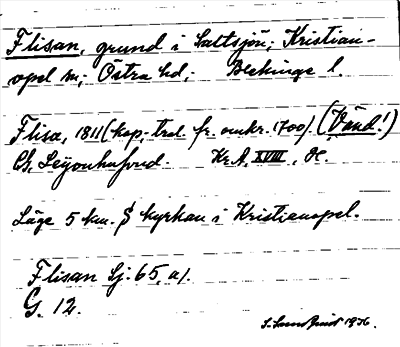 Flisan, grund i Saltsjön; Kristian-
opel sn; Östra hd; Blekinge l.
Flisa, 1811 (kop. trol. fr. omkr. 1700). (Vänd!)
G. Leijonhufvud. Kr.A, XVIII,
Läge 5 km. S kyrkan i Kristianopel.
Flisan Sj. 65, a).
G. 12.
1936.